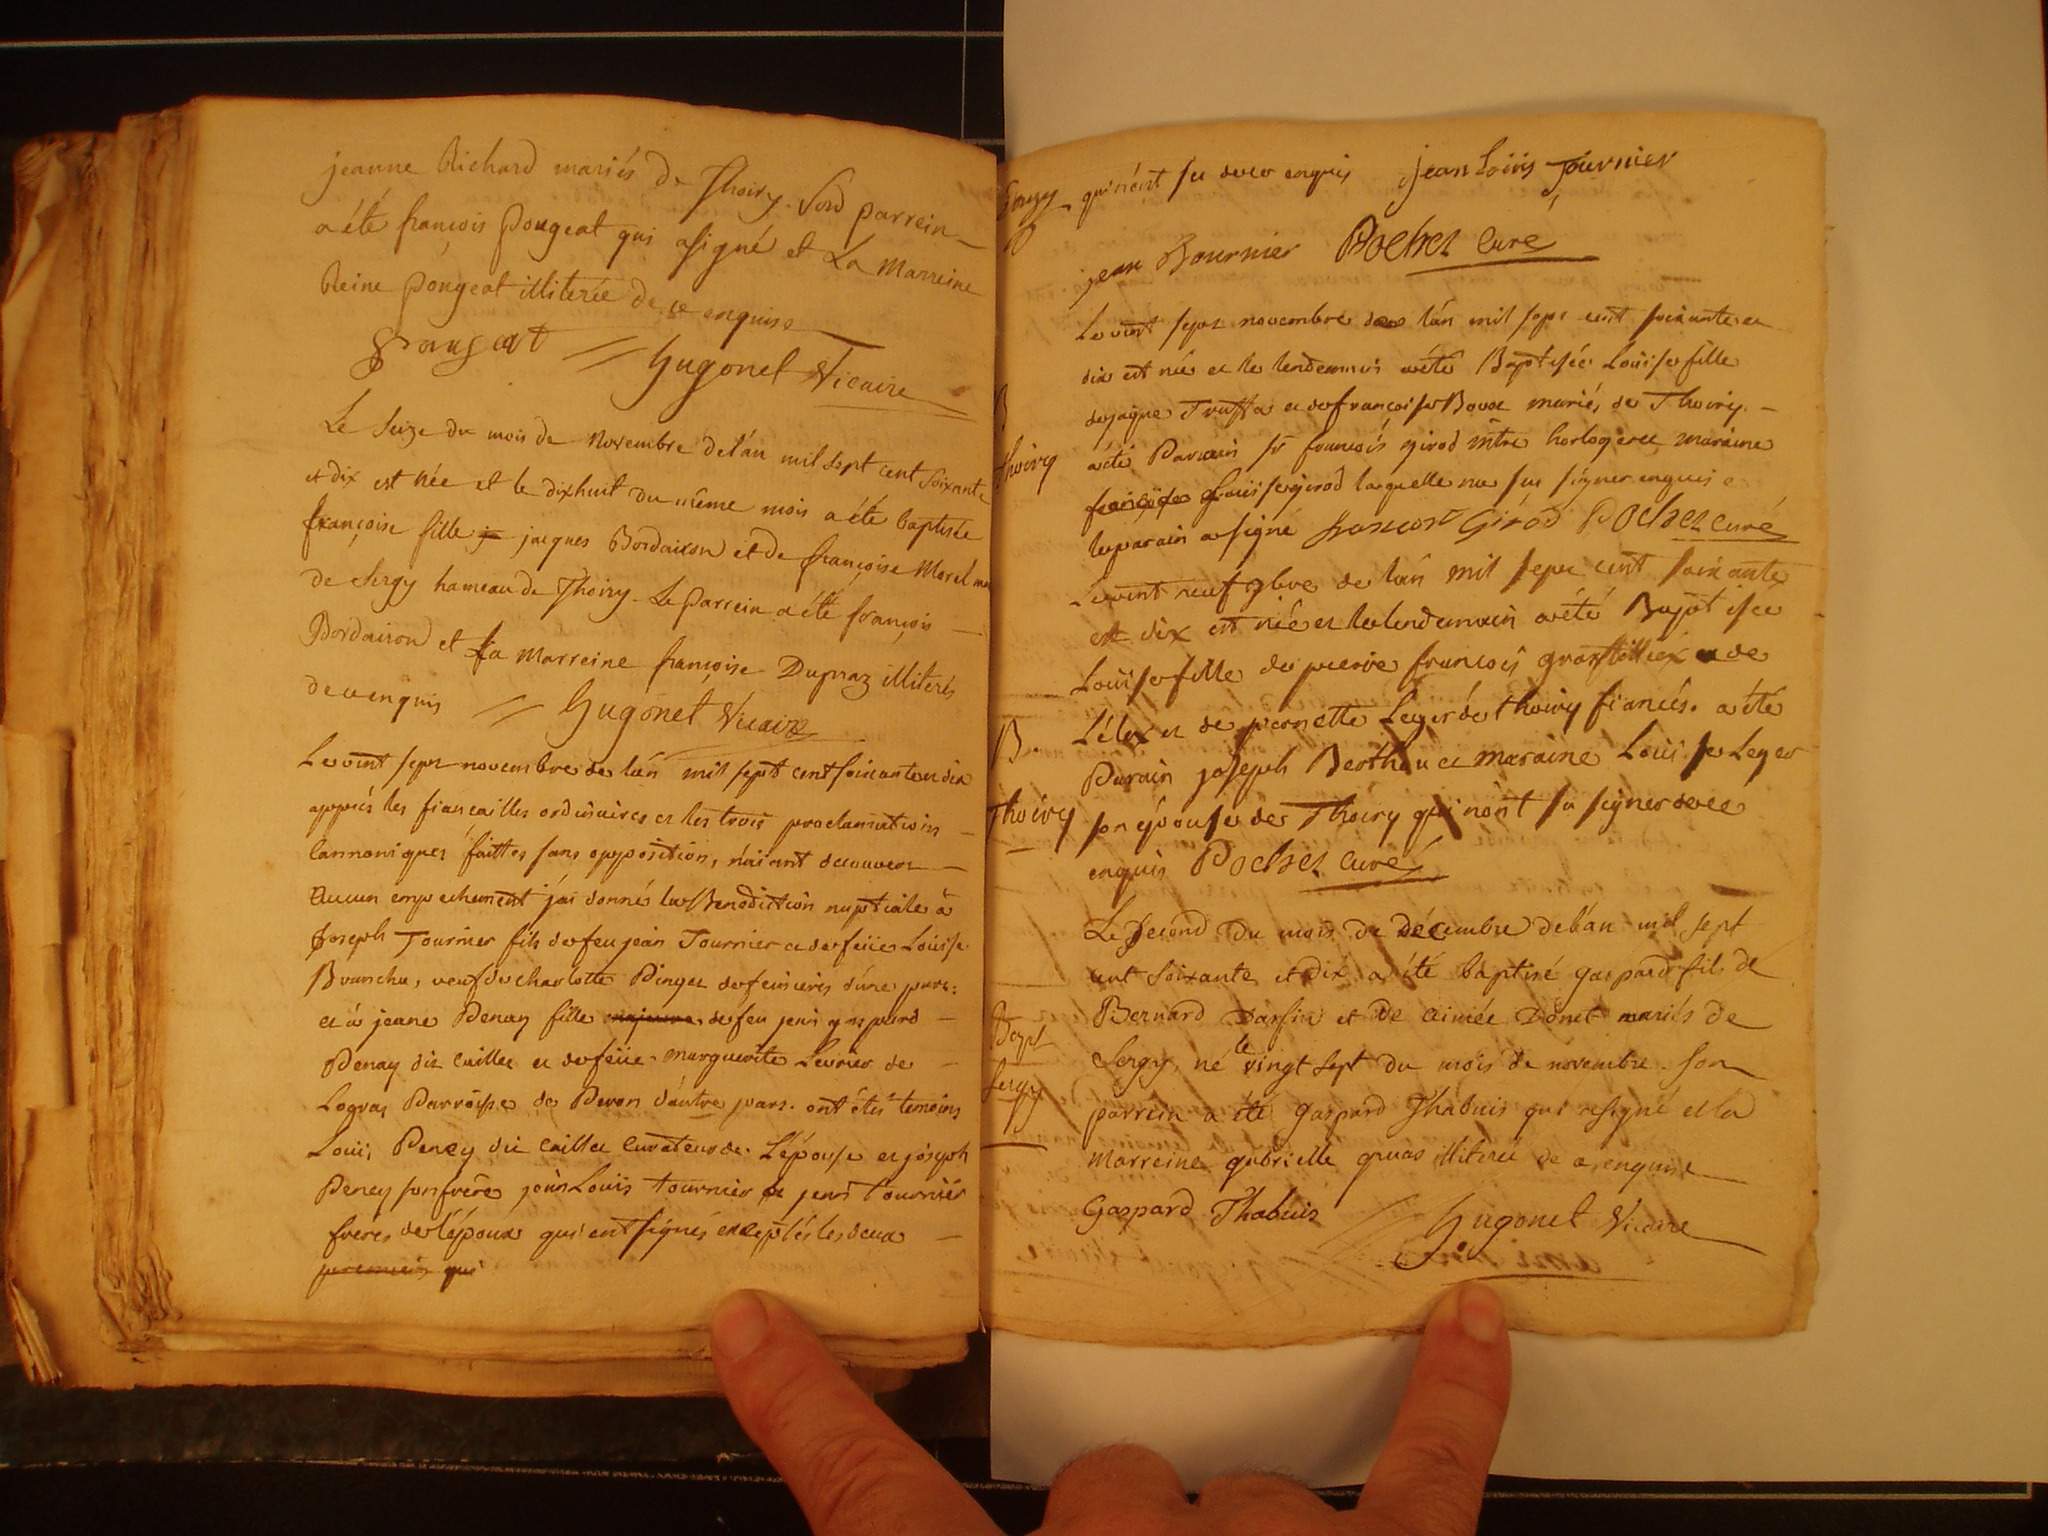 jeanne Richard mariés de Thoiry. Son parrein
a été françois Pougeat qui asigné et La Marreine
Reine Pougeat illiterée de ce enquise
Pougeat Hugonet Vicaire
Le Seize du mois de Novembre de l'an mil Sept cent Soixante
et dix est née et le dixhuit du même mois a été baptisée
françoise fille jacques Bordairon et de françoise Morel
de Sergy hameau de Thoiry. Le Parrein a été françois
Bordairon et La Marreine françoise Dupraz illiterés
de ce enquis Hugonet Vicaire
Le vint sept novembre de l'an mil sept cent soixante et dix
apprés les fiancailles ordinaires et les trois proclamations
cannoniques faittes sans opposition, n'aiant decouvert
Aucun empechement j'ai donné la Benediction nuptiale à
Joseph Tournier fils de feu jean Tournier et de feüe Louise
Branchu, veuf de charlotte Pinget de fenieres d'úne part:
et à jeane Penay fille majeure de feu jean gaspard
Penay dit caillet et de feüe marguerite Levrier de
Logras Parroisse de Peron d'autre part. ont étés temoins
Louis Peney dit caillet curateur de L'épouse et joseph
Peney son frère jean Louis tournier et jean Tournier
freres de l'époux qui ont signés exceptés les deux
premiers qui
Sergy qui n'ont su de ce enquis jean Louis Tournier
jean Tournier Pochet Curé
Le vint sept novembre de l'an mil sept cent soixante et
dix est née et le lendemain a été Baptisée Louise fille
de jaque Truffa et de françoise Bouet mariés de Thoiry.
a été Parain sr françois girod mtre horloger et maraine
françoise Loüise girod laquelle ne su signer enquise
le parain a signé francois Girod Pochet curé
B
Thoiry
Le vint neuf 9bre de l'an mil sept cent soixante
et dix est née et le lendemain a été Baptisée
Louise fille de pierre françois de
Lélex et de pernette Leger de thoiry fiancés. a été
Parain joseph Berthou et maraine Louise Leger
son épouse de Thoiry qui n'ont su signer de ce
enquis Pochet Curé
B.
Thoiry
Le Second du mois de décembre de l'an mil sept
cent soixante et dix a été baptisé gaspard fils de
Bernard Darsin et de aimée Donet mariés de
Sergy, né le vingt sept du mois de novembre. Son
parrein a été gaspard Thabuis qui asigné et la
Marreine gabrielle gruas illiterée de ce enquise
Gaspard Thabuis Hugonet Vicaire
Bapt
Sergy